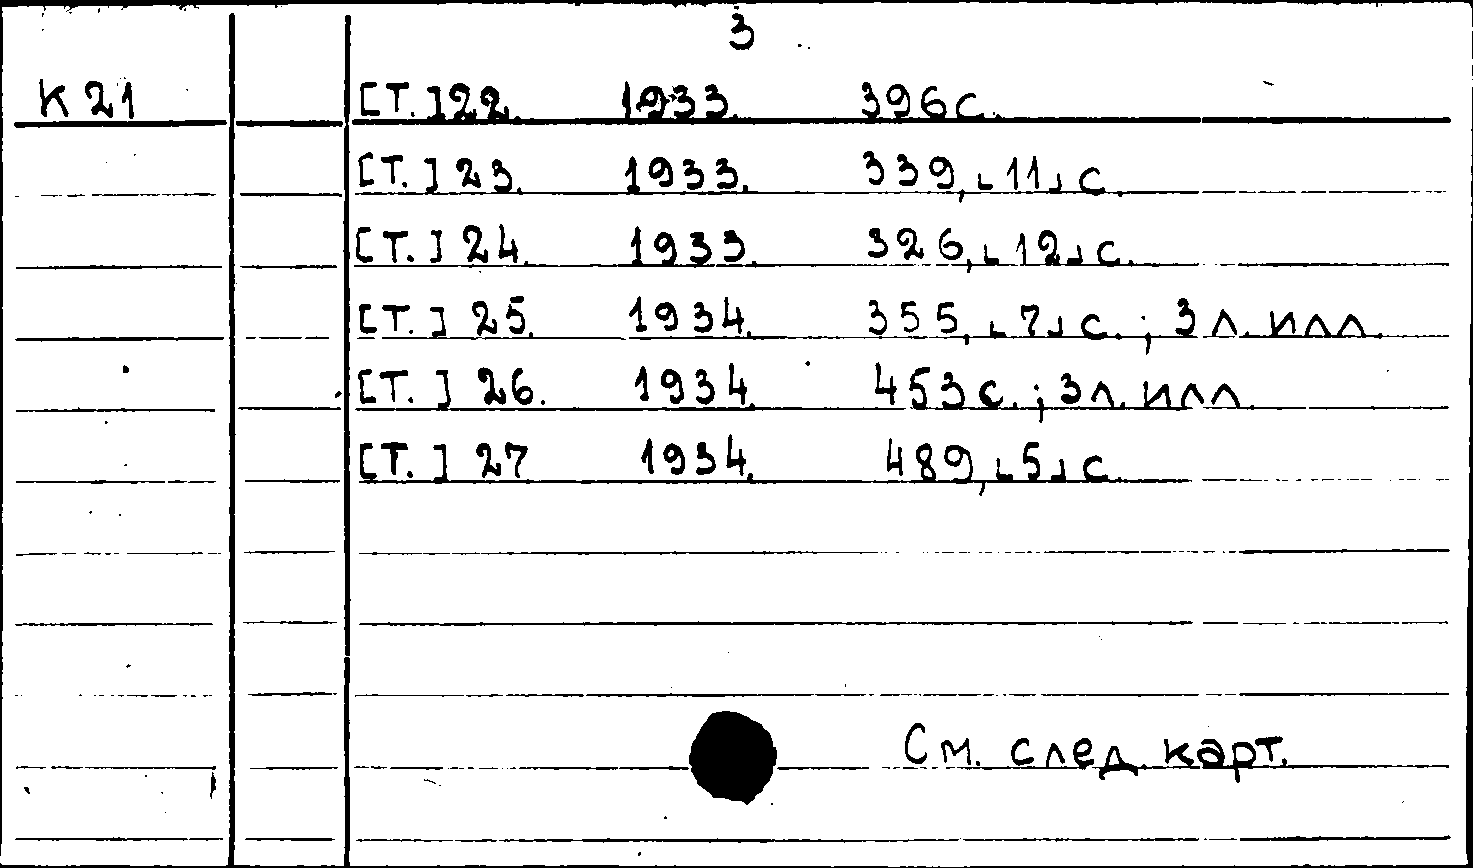 3
К 21 [Т.] 22. 1933. 396 с.
[Т.] 23. 1933. 339, ⌞11⌟ с.
[Т.] 24. 1933. 326, ⌞12⌟ с.
[Т.] 25. 1934. 355, ⌞7⌟ с. ; 3 л. илл.
[Т.] 26. 1934. 453 с. ; 3 л. илл.
[Т.] 27 1934. 489, ⌞5⌟ с.
См. след. карт.